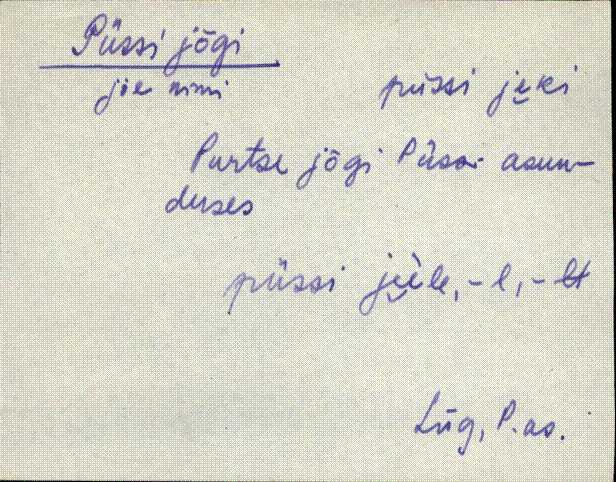 Püssi jõgi
jõe nimi püssi je̮ki
Purtse jõgi Püssi asun-
duses
püssi je̮èle, -l, -lt
Lüg, P. as.